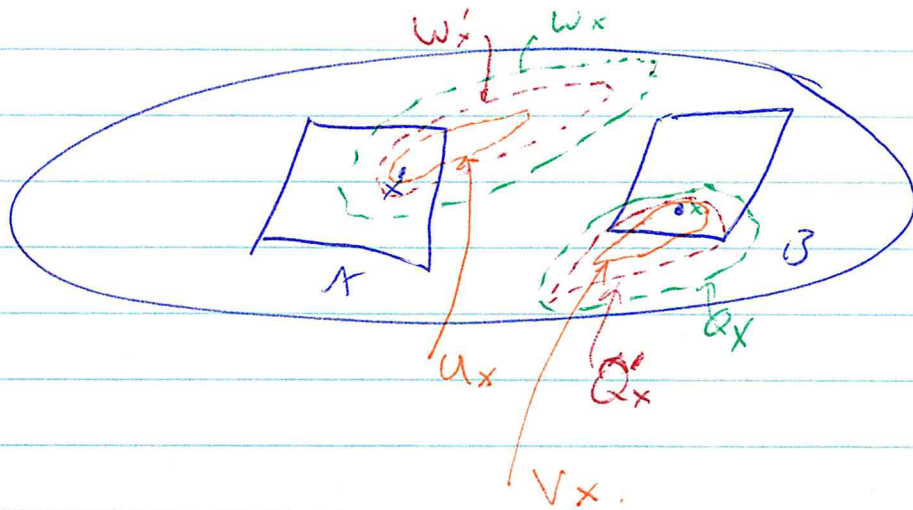 W'x Wx
x x
A B
Qx
Ux Q'x
Vx.